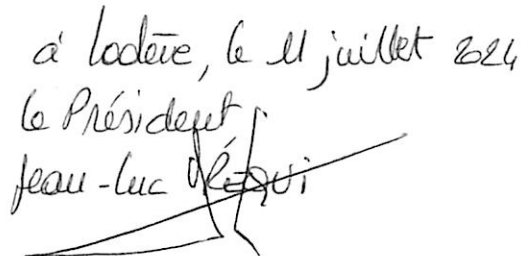 à Lodève, le 11 juillet 2024
Le Président
Jean-Luc REQUI